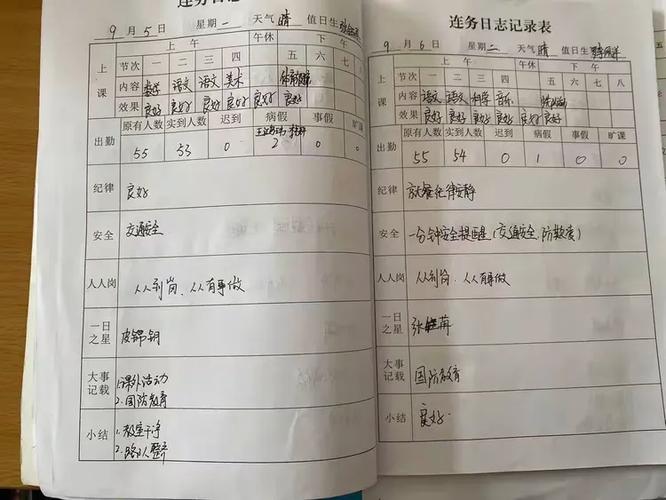 连务日志
9月5日 星期一 天气晴 值日生
上午 午休 下午
上课 节次 一 二 三 四 五 六 七 八
内容 数学 语文 语文 美术
效果 良好 良好 良好 良好 良好 良好
出勤 原有人数 实到人数 迟到 病假 事假 旷课
55 53 0 2 0 0
纪律 良好
安全 交通安全
人人岗 人人到岗、人人有事做
一日之星 皮锦钥
大事记载 1.课外活动
2.国防教育
小结 1.教室干净
2.路队整齐
连务日志记录表
9月6日 星期二 天气晴 值日生
上午 午休 下午
上课 节次 一 二 三 四 五 六 七 八
内容 语文 语文 科学 音乐
效果 良好 良好 良好 良好 良好 良好
出勤 原有人数 实到人数 迟到 病假 事假 旷课
55 54 0 1 0 0
纪律 就餐纪律安静
安全 一分钟安全提醒(交通安全、防欺凌)
人人岗 人人到岗、人人有事做
一日之星
大事记载 国防教育
小结 良好.